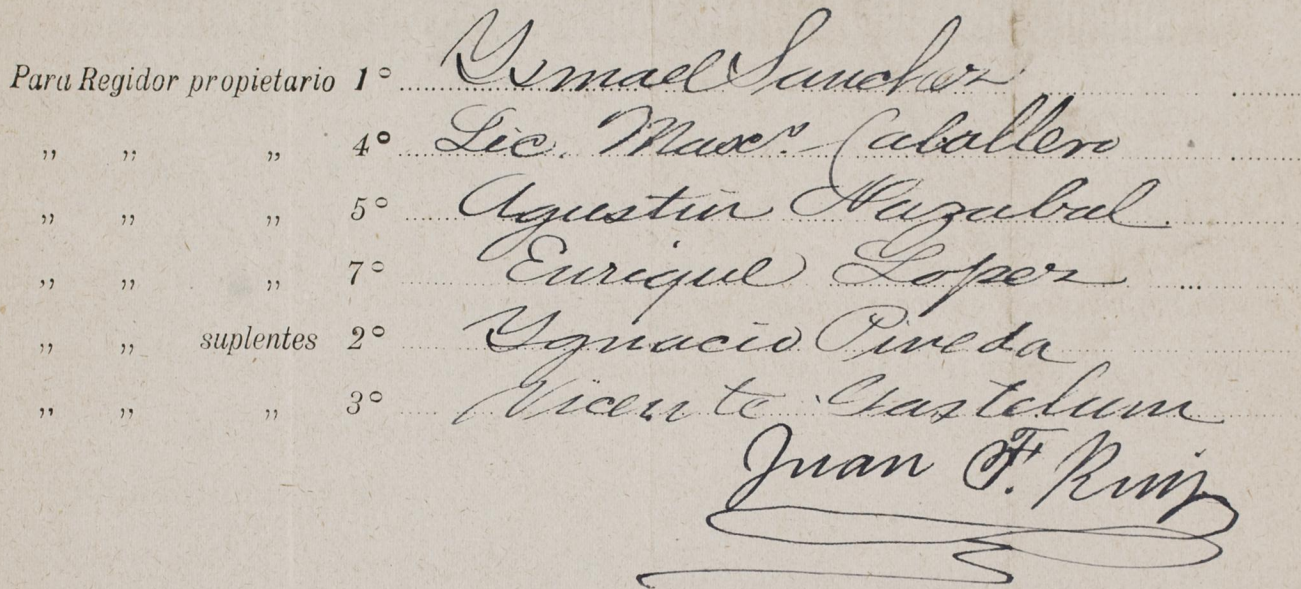 Para Regidor propietario 1º Ysmael Sanchez
„ „ „ 4º Lic. Maxº. Caballero
„ „ „ 5º Agustin Nazabal.
„ „ „ 7º Enrique Lopez
„ „ suplentes 2º Ygnacio Pineda
„ „ „ 3º Vicente Gastelum
Juan F. Ruiz